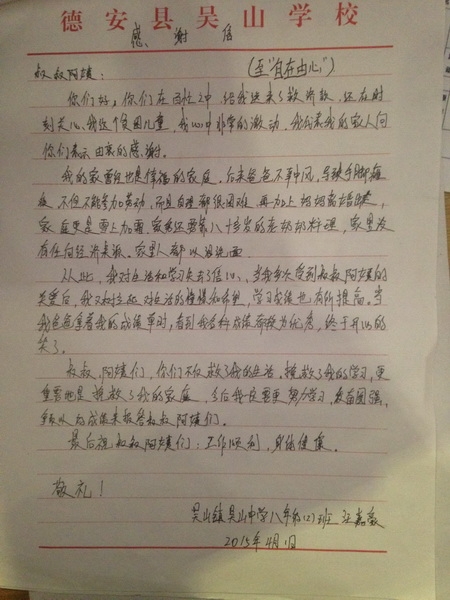 德安县吴山学校
感谢信
(至"自在由心")
叔叔阿姨:
你们好,你们在百忙之中,给我送来了救济款,还在时
刻关心我这个贫困儿童,我心中非常的激动,我代表我的家人向
你们表示由衷的感谢。
我的家曾经也是幸福的家庭。后来爸爸不幸中风,导致手脚瘫
痪,不但不能参加劳动,而且自理都很困难,再加上妈妈离婚
家庭更是雪上加霜,家务还要靠八十多岁的老奶奶料理,家里没
有任何经济来源,家里人都以泪洗面。
从此,我对生活和学习失去了信心,当我多次受到叔叔阿姨的
关爱后,我又树立起对生活的憧憬和希望,学习成绩也有所提高。当
我爸爸拿着我的成绩单时,看到我各科成绩都较为优秀,终于开心的
笑了。
叔叔、阿姨们,你们不仅救了我的生活,拯救了我的学习,更
重要也是拯救了我的家庭,今后我一定要更努力学习,发奋图强、
争取以的成绩来报答叔叔阿姨们。
最后祝叔叔阿姨们:工作顺利,身体健康。
敬礼!
吴山镇吴山中学八年级(2)班
2015年4月1日